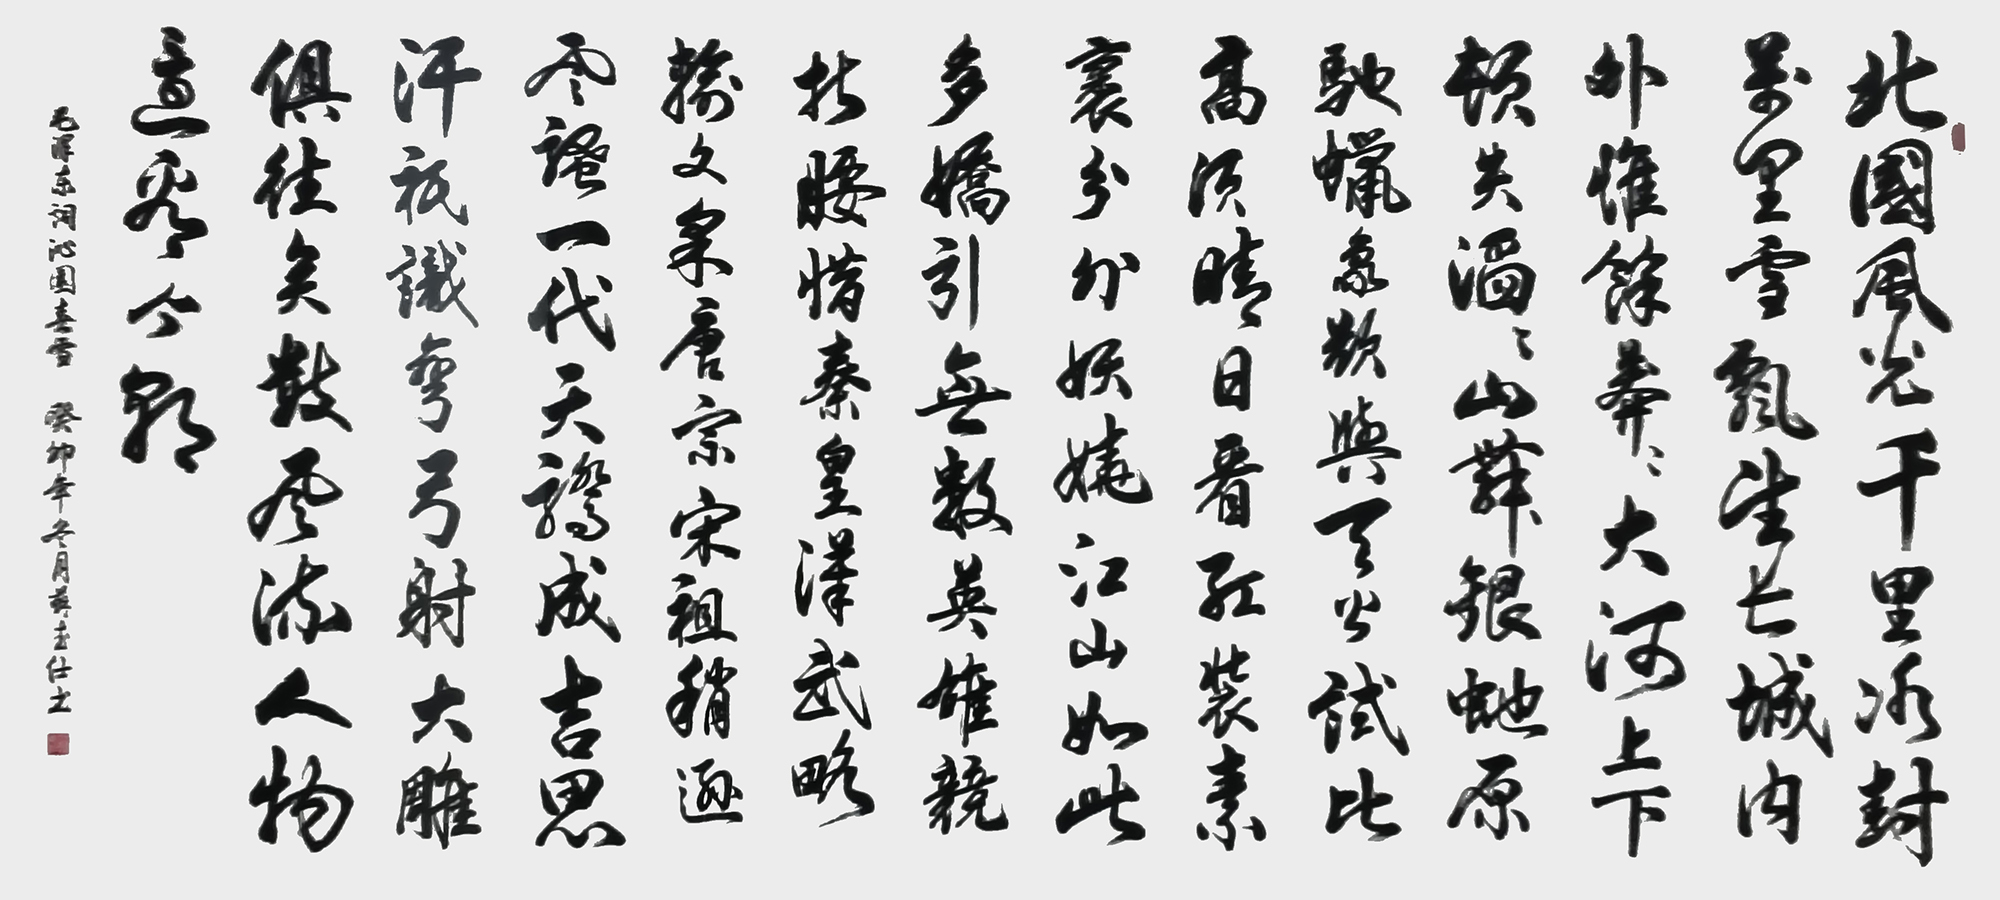 北國風光千里冰封
萬里雪飄望长城内
外惟餘莽々大河上下
頓失滔々山舞銀蛇原
馳蠟象欲與天公試比
高須晴日看紅裝素
裹分外妖嬈江山如此
多嬌引無數英雄競
折腰惜秦皇漢武略
輸文采唐宗宋祖稍遜
风騷一代天驕成吉思
汗祇識彎弓射大雕
俱往矣數风流人物
還看今朝
毛澤东词沁园春雪 癸卯年冬月